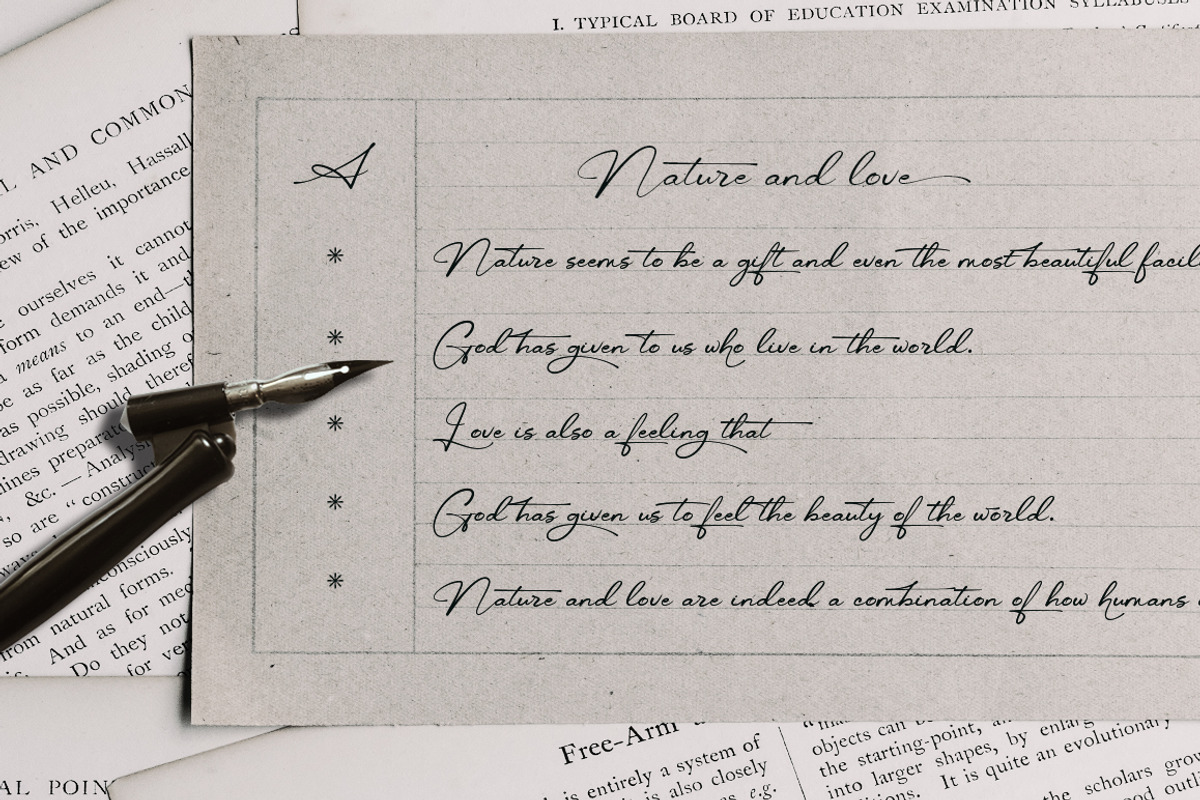 I. TYPICAL BOARD OF EDUCATION EXAMINATION SYLLABUSES
L AND COMMON
Helleu, Hassall
ew of the importance
ourselves it cannot
form demands it and
means to an end—
as far as the child
as possible, shading
drawing should
lines
&c. — Analysi
so are "construct
consciously
from natural forms.
And as for med
Do they not
for ver
A
Nature and love
* Nature seems to be a gift and even the most beautiful facil
* God has given to us who live in the world.
* Love is also a feeling that
* God has given us to feel the beauty of the world.
* Nature and love are indeed a combination of how humans
AL POIN
Free-Arm
is entirely a system of
is also closely
e.g.
objects can
the starting-point,
into larger shapes, by enlarg
It is quite an evolutionary
the scholars grow